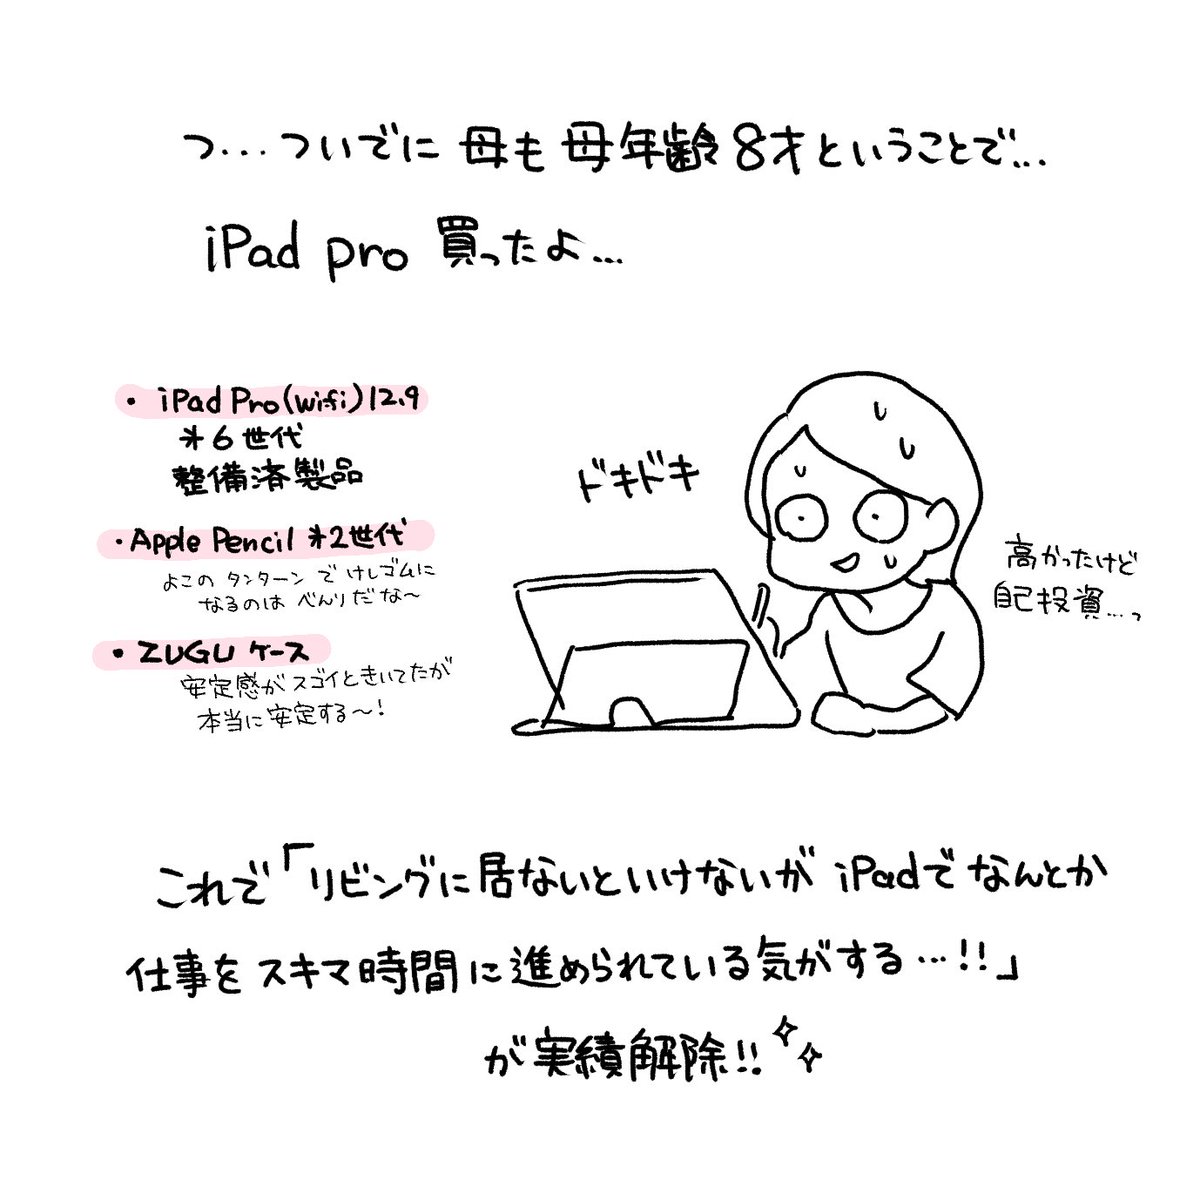 つ…ついでに 母も 母年齢8才ということで…
iPad pro 買ったよ…
・ iPad Pro(wifi)12.9
*6世代
整備済製品
・Apple Pencil *2世代
よこの タンターン で けしゴムに
なるのは べんりだな〜
・ZUGU ケース
安定感がスゴイときいてたが
本当に安定する〜!
ドキドキ
高かったけど
自己投資…っ
これで「リビングに居ないといけないが iPadでなんとか
仕事をスキマ時間に進められている気がする…!!」
が実績解除!!